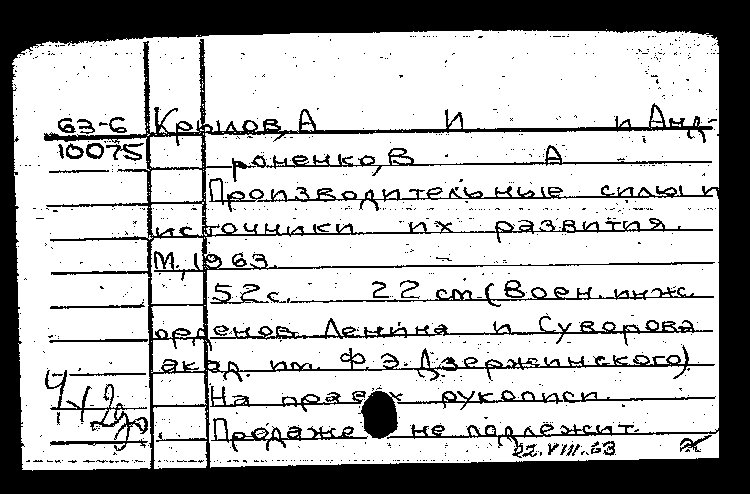 63-6 Крылов, А И и Анд-
10075 роненко, В А
Производительные силы и
источники их развития.
М., 1963.
52 с. 22 см (Воен. инж.
орденов Ленина и Суворова
акад. им. Ф. Э. Дзержинского)
На правах рукописи.
Продаже не подлежит.
22.VIII.63